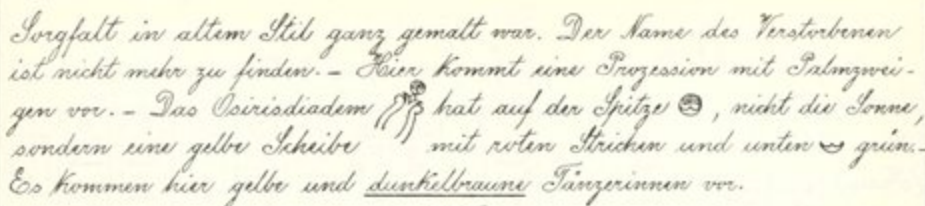 Sorgfalt in altem Stil ganz gemalt war. Der Name des Verstorbenen
ist nicht mehr zu finden. – Hier kommt eine Prozession mit Palmzwei-
gen vor. – Das Osirisdiadem hat auf der Spitze , nicht die Sonne,
sondern eine gelbe Scheibe mit roten Strichen und unten grün. –
Es kommen hier gelbe und dunkelbraune Tänzerinnen vor.